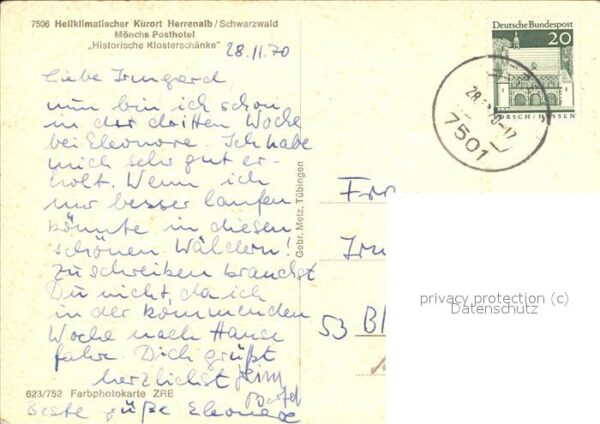 7506 Heilklimatischer Kurort Herrenalb/Schwarzwald
Mönchs Posthotel
„Historische Klosterschänke"
28.11.70
Liebe Irmgard
nun bin ich schon
in der dritten Woche
bei Eleonore. Ich habe
mich sehr gut er-
holt. Wenn ich
nur besser laufen
könnte in diesen
schönen Wäldern!
Zu schreiben brauchst
Du nicht, da ich
in der kommenden
Woche nach Hause
fahre. Dich grüßt
herzlichst
623/752 Farbphotokarte ZRE
Beste Grüße Eleonore
Gebr. Metz, Tübingen
Deutsche Bundespost
20
LORSCH/HESSEN
7501
Irm
53 B
privacy protection (c)
Datenschutz